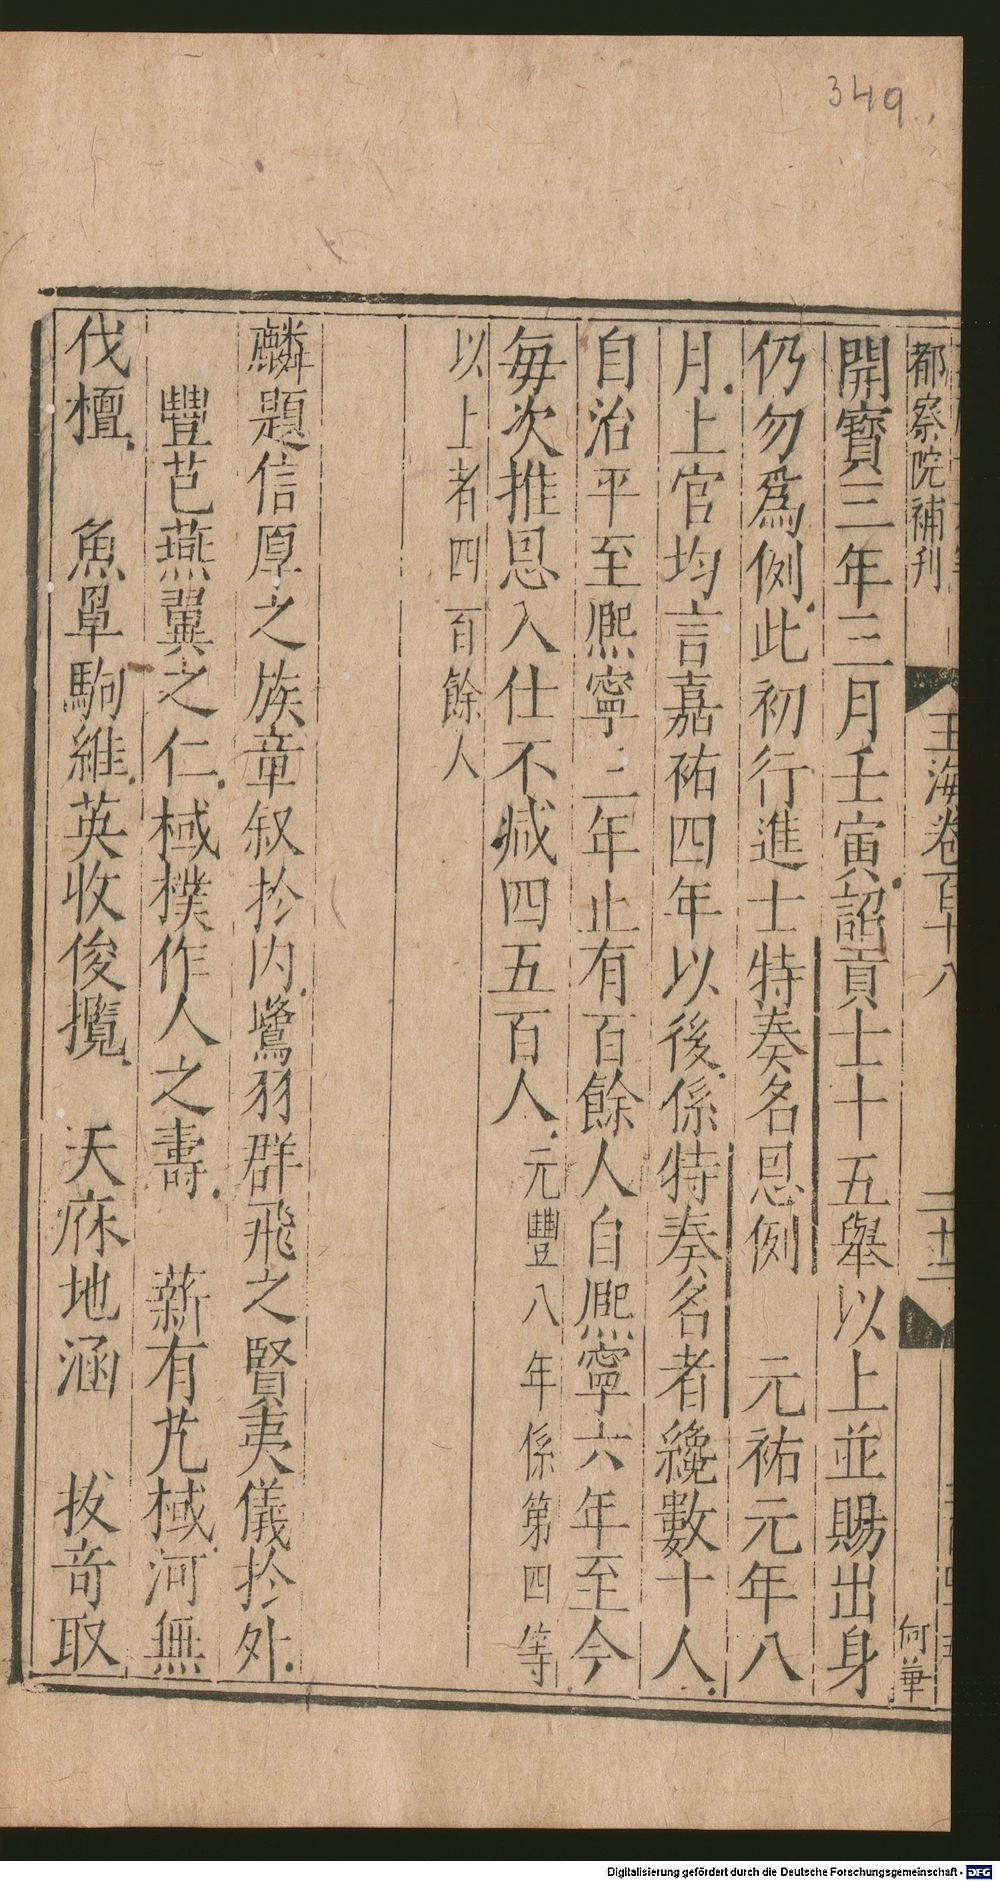 349
都察院補刊
玉海卷百十八
二十二
何華
開寶三年三月壬寅詔貢士十五舉以上並賜出身
仍勿爲例此初行進士特奏名恩例 元祐元年八
月上官均言嘉祐四年以後係特奏名者纔數十人
自治平至熈寧三年止有百餘人自熈寧六年至今
每次推恩入仕不减四五百人元豐八年係第四等
以上者四百餘人
麟題信厚之族章叙扵内鷺羽群飛之賢夷儀扵外
豐芑燕翼之仁棫樸作人之壽 薪有芃棫河無
伐檀 魚罩駒維英收俊攬 天庥地涵 拔竒取
Digitalisierung gefördert durch die Deutsche Forschungsgemeinschaft - DFG